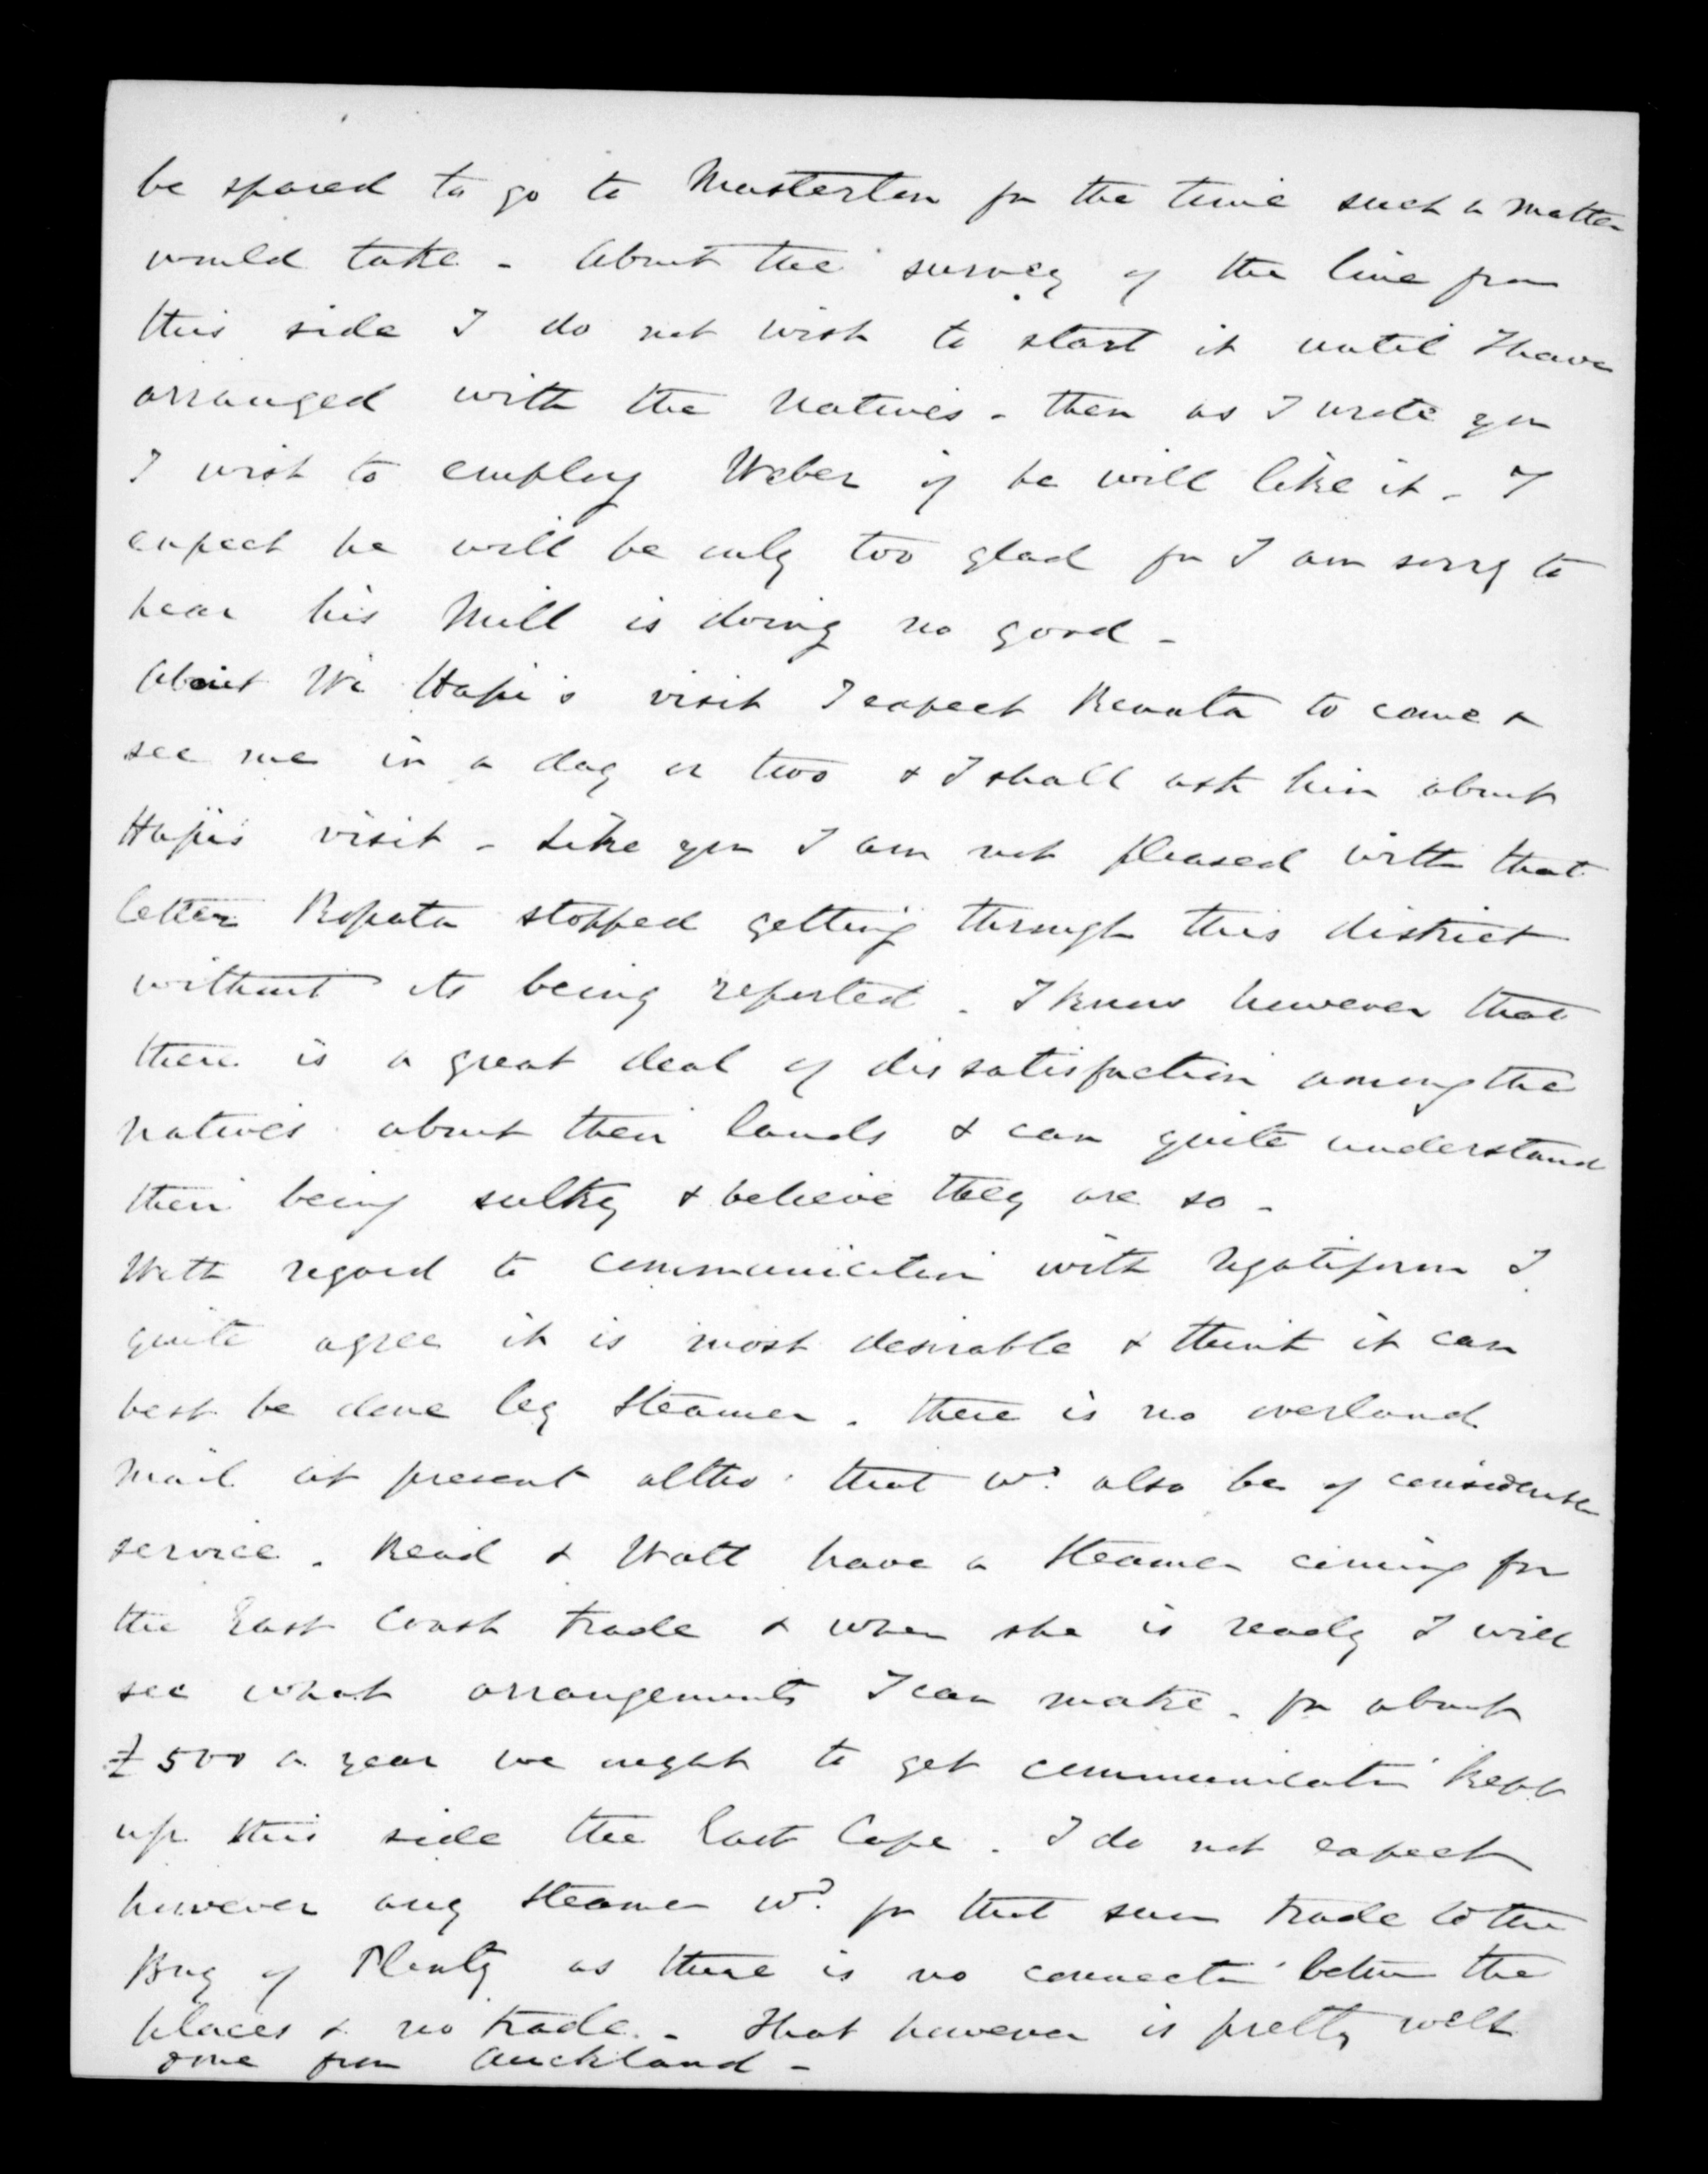 be spared to go to Masterton for the time such a matter
would take - About the survey of the line from
this side I do not wish to start it until I have
arranged with the Natives - then as I wrote you
I wish to employ Weber if he will like it - I
expect he will be only too glad for I am sorry to
hear his Mill is doing no good -
About Wi Hapi's visit I expect Renata to come &
see me in a day or two & I shall ask him about
Hapi's visit - Like you I am not pleased with that
letter Ropata stopped getting through this district
without its being reported . I know however that
there is a great deal of dissatisfaction among the
natives about their lands & can quite understand
their being sulky & believe they are so -
With regard to communication with Ngatiporou I
quite agree it is most desirable & think it can
best be done by Steamer . there is no overland
mail at present altho' that wd. also be of considerable
service . Read & Watt have a Steamer coming for
the East Coast trade & when she is ready I will
see what arrangements I can make . for about
£500 a year we ought to get communicatn kept
up this side the East Cape . I do not expect
however any Steamer wd. for that sum trade to the
Bay of Plenty as there is no connectn between the
places & no trade . - that however is pretty well
done from Auckland -